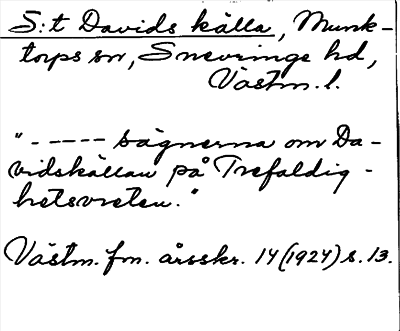 S:t Davids källa, Munk-
torps sn, Snevringe hd,
Västm. l.
"----- sägnerna om Da-
vidskällan på Trefaldig-
hetsvreten."
Västm. fm. årsskr. 14 (1924) s. 13.